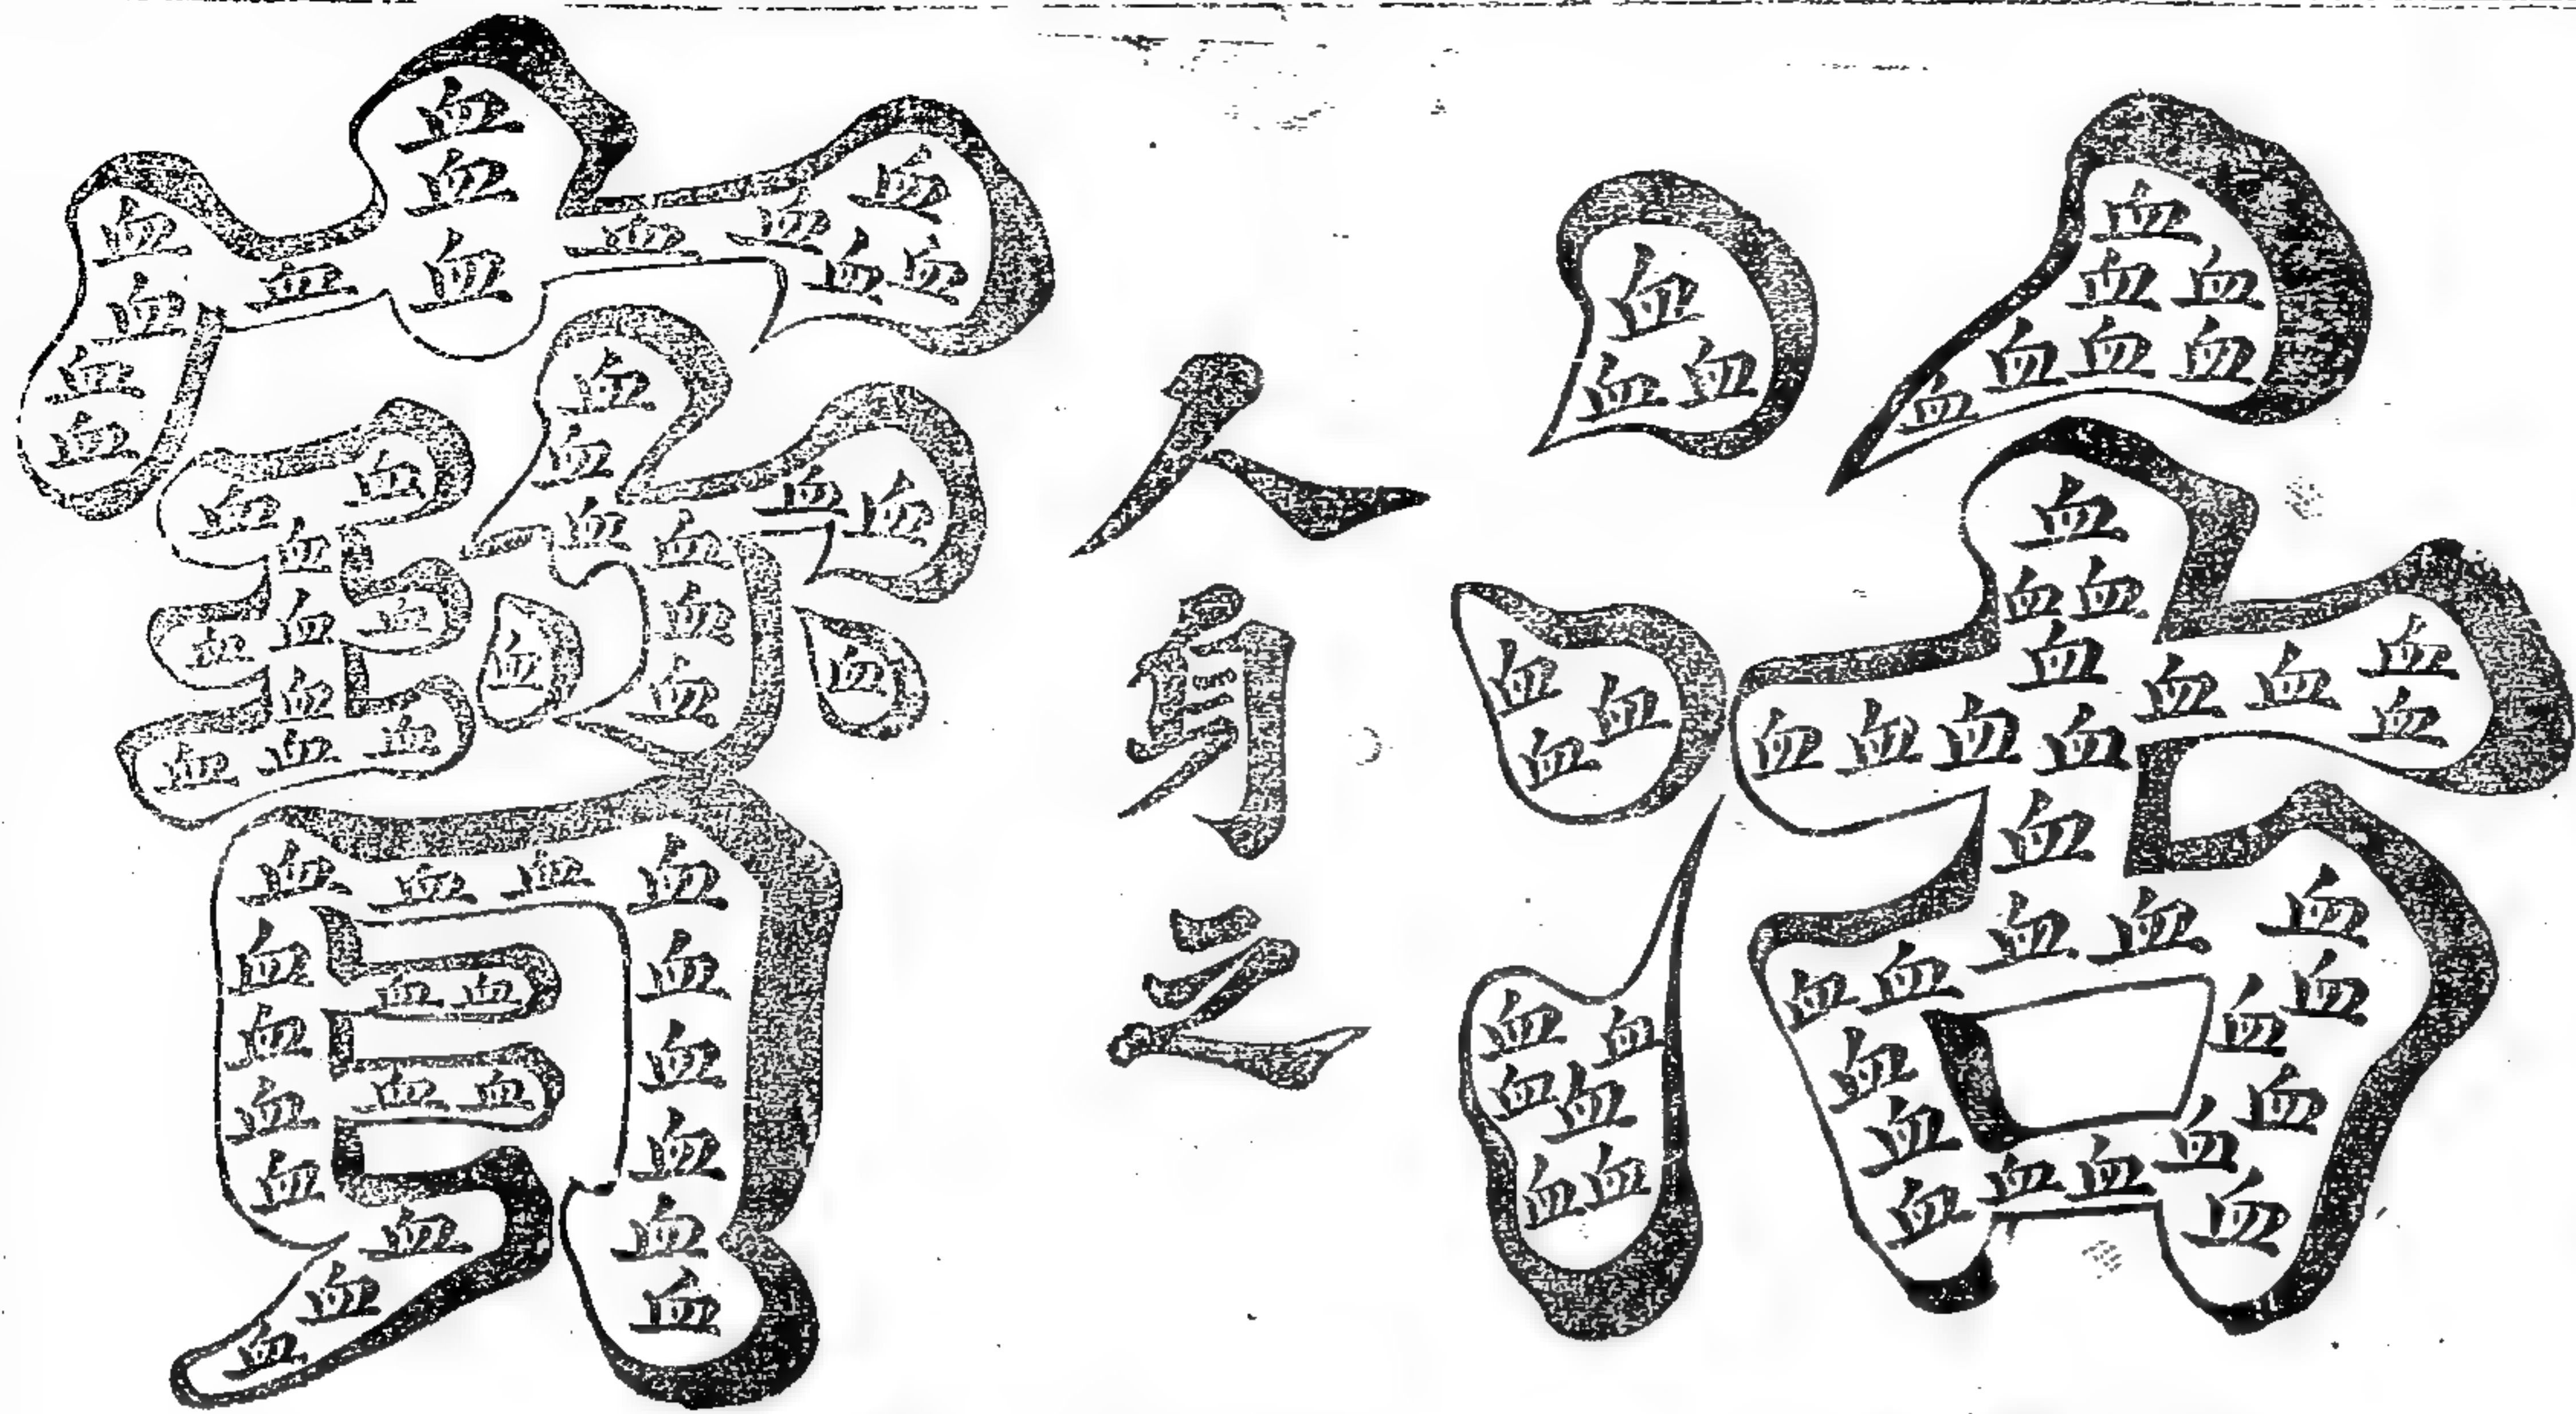 活
人身之
寶
血